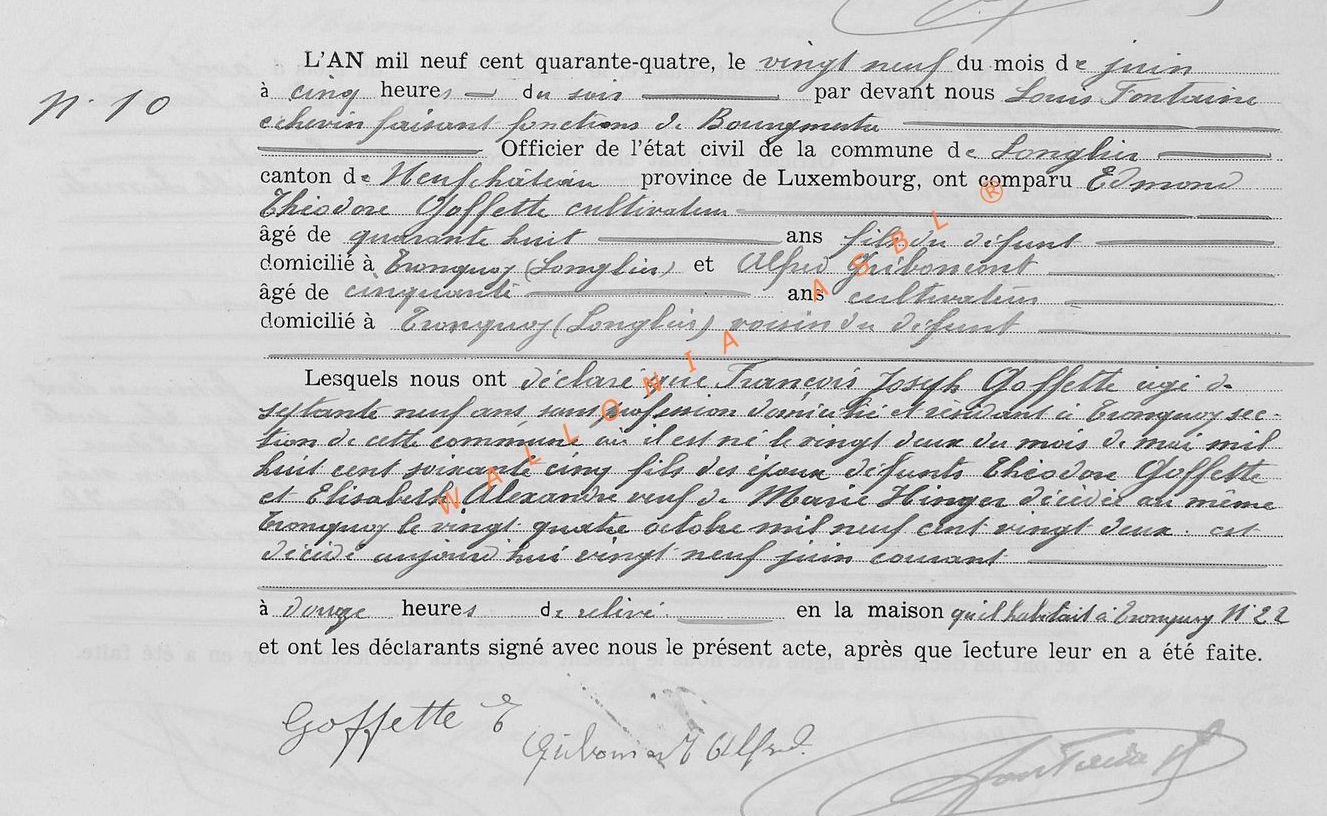 L'AN mil neuf cent quarante-quatre, le vingt neuf du mois de juin
N° 10
à cinq heures du soir par devant nous Louis Fontaine
echevin faisant fonctions de Bourgmestre
Officier de l'état civil de la commune de Longlier
canton de Neufchâteau province de Luxembourg, ont comparu Edmond
Théodore Goffette cultivateur
âgé de quarante huit ans fils du défunt
domicilié à Tronquoy (Longlier) et Alfred Gribomont
âgé de cinquante ans cultivateur
domicilié à Tronquoy (Longlier) voisin du défunt
Lesquels nous ont déclaré que François Joseph Goffette âgé de
septante neuf ans, sans profession domicilié et résidant à Tronquoy sec-
tion de cette commune où il est né le vingt deux du mois de mai mil
huit cent soixante cinq fils des époux défunts Théodore Goffette
et Elisabeth Alexandre veuf de Marie Hinger décédée au même
Tronquoy le vingt quatre octobre mil neuf cent vingt deux. est
décédé aujourd'hui vingt neuf juin courant
à douze heures de relevé en la maison qu'il habitait à Tronquoy N° 22
et ont les déclarants signé avec nous le présent acte, après que lecture leur en a été faite.
Goffette E
Gribomont Alfred.
Fontaine
WALLONIA ASBL ®